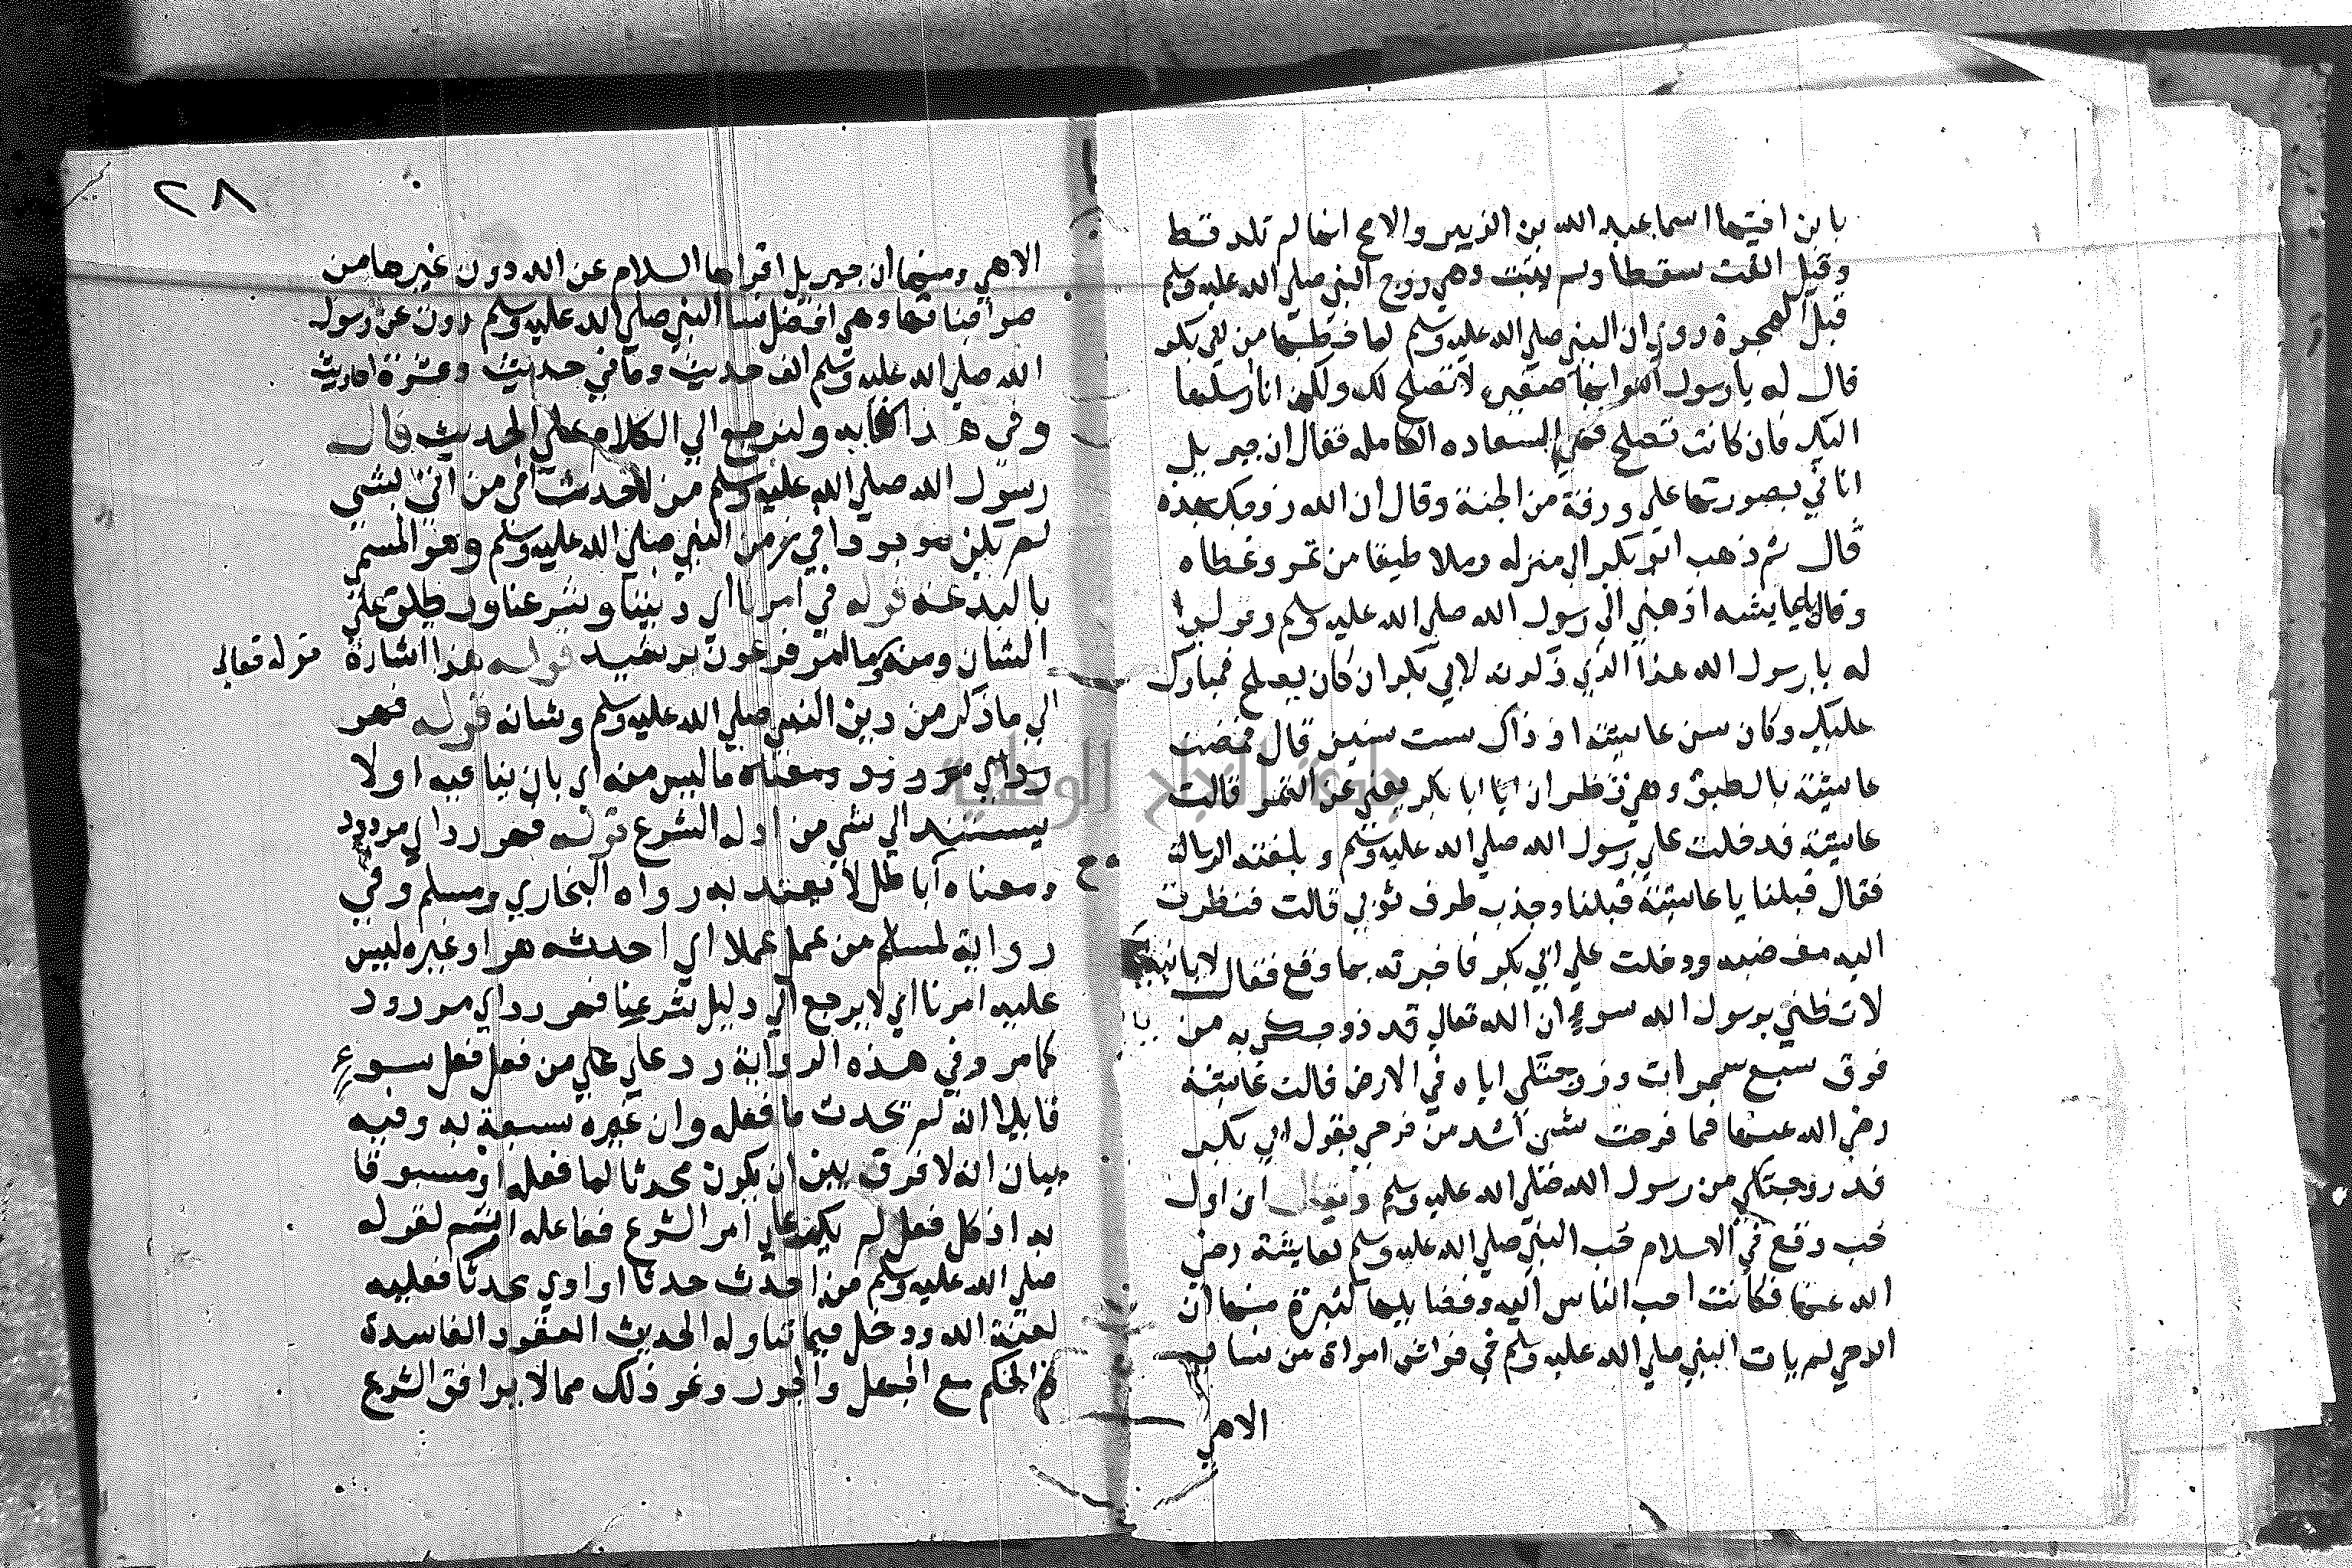 بابن اختها اسما عبد الله بن الزبير والاصح انها لم تلد قط
وقيل القت سقطا ولم يثبت وهي زوج النبي صلي الله عليه وسلم
قبل الهجرة روي ان النبي صلي الله عليه وسلم لما خطبها من ابي بكر
قال له يا رسول الله انها صغيره لا تصلح لك ولكن انا ارسلها
اليك فان كانت تصلح فهي السعاده الكامله فقال ان جبريل
اتاني بصورتها علي ورقة من الجنة وقال ان الله زوجك بهذه
قال ثم ذهب ابو بكر الي منزله وملا طبقا من تمر وغطاه
وقال يا عايشه اذهبي الي رسول الله صلي الله عليه وسلم وقولي
له يا رسول الله هذا الذي ذكرت لابي بكر ان كان يصلح فمبارك
عليك وكان سن عايشة اذ ذاك ست سنين قال فمضت
عايشة بالطبق وهي تظن ان ابا بكر يعني عن التمر قالت
عايشة فدخلت علي رسول الله صلي الله عليه وسلم وبلغته الرسالة
فقال قبلنا يا عايشة قبلنا وجذب طرف ثوبي قالت فنظرت
اليه مغضبه ودخلت علي ابي بكر فاخبرته بما وقع فقال يا بنية
لا تظني برسول الله سوءا ان الله تعالي قد زوجك به من
فوق سبع سموات وزوجتكي اياه في الارض قالت عايشة
رضي الله عنها فما فرحت بشي اشد من فرحي بقول ابي بكر
قد زوجتكي من رسول الله صلي الله عليه وسلم ويقال ان اول
حب وقع في الاسلام حب النبي صلي الله عليه وسلم لعايشة رضي
الله عنها فكانت احب الناس اليه وفضايلها كثيرة منها ان
الوحي لم يات النبي صلي الله عليه وسلم في فراش امراة من نسايه
الاهي
٢٨
الاهي ومنها ان جبريل اقراها السلام عن الله دون غيرها من
صواحباتها وهي افضل نسا النبي صلي الله عليه وسلم روت عن رسول
الله صلي الله عليه وسلم الف حديث وماتي حديث وعشرة احاديث
وفي هذا كفايه ولنرجع الي الكلام علي الحديث قال
رسول الله صلي الله عليه وسلم من احدث اي من اتي بشي
لم يكن موجودا في زمن النبي صلي الله عليه وسلم وهو المسمي
بالبدعه قوله في امرنا اي ديننا وشرعنا ويطلق علي
الشان ومنه وما امر فرعون برشيد قوله هذا اشارة
قوله تعالى
الي ما ذكر من دين النبي صلي الله عليه وسلم وشانه قوله فهو
رد اي مردود ومعناه ما ليس منه اي بان ينافيه اولا
يستند الي شي من ادله الشرع قوله فهو رد اي مردود
ومعناه باطل لا يعتد به رواه البخاري ومسلم وفي
رواية لمسلم من عمل عملا اي احدثه هو او غيره ليس
عليه امرنا اي لا يرجع الي دليل شرعنا فهو رد اي مردود
كما مر وفي هذه الرواية رد علي من فعل فعل سوء
قايلا انه لم يحدث ما فعله وان غيره سبقه به وفيه
بيان انه لا فرق بين ان يكون محدثا لما فعله او مسبوقا
به اذ كل فعل لم يكن علي امر الشرع ففاعله اثم لقوله
صلي الله عليه وسلم من احدث حدثا او اوي محدثا فعليه
لعنة الله ودخل فيما تناوله الحديث العقود الفاسدة
والحكم مع الجهل والجور ونحو ذلك مما لا يوافق الشرع
جامعة النجاح الوطنية